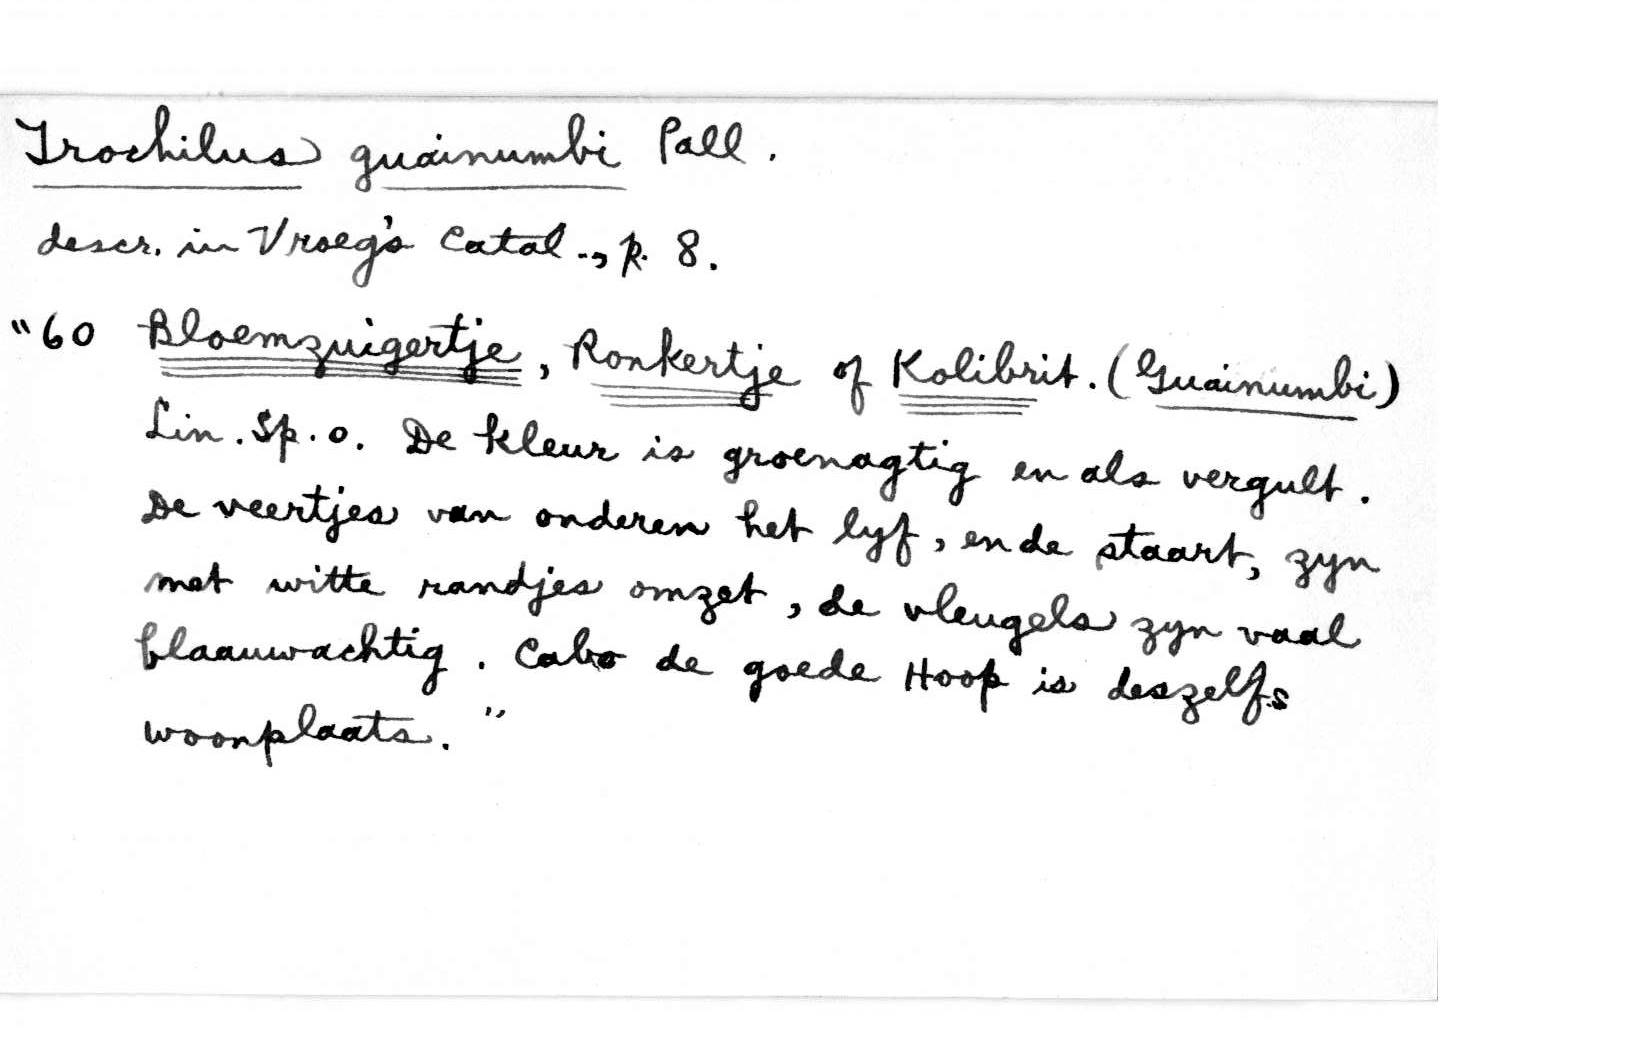 Trochilus guainumbi Pall.
descr. in Vroeg's Catal., p. 8.
"60 Bloemzuigertje, Ronkertje of Kolibrit. (Guainumbi)
Lin. Sp. o. De kleur is groenagtig en als vergult.
De veertjes van onderen het lyf, en de staart, zyn
met witte randjes omzet, de vleugels zyn vaal
blaauwachtig. Cabo de goede Hoop is deszelfs
woonplaats."